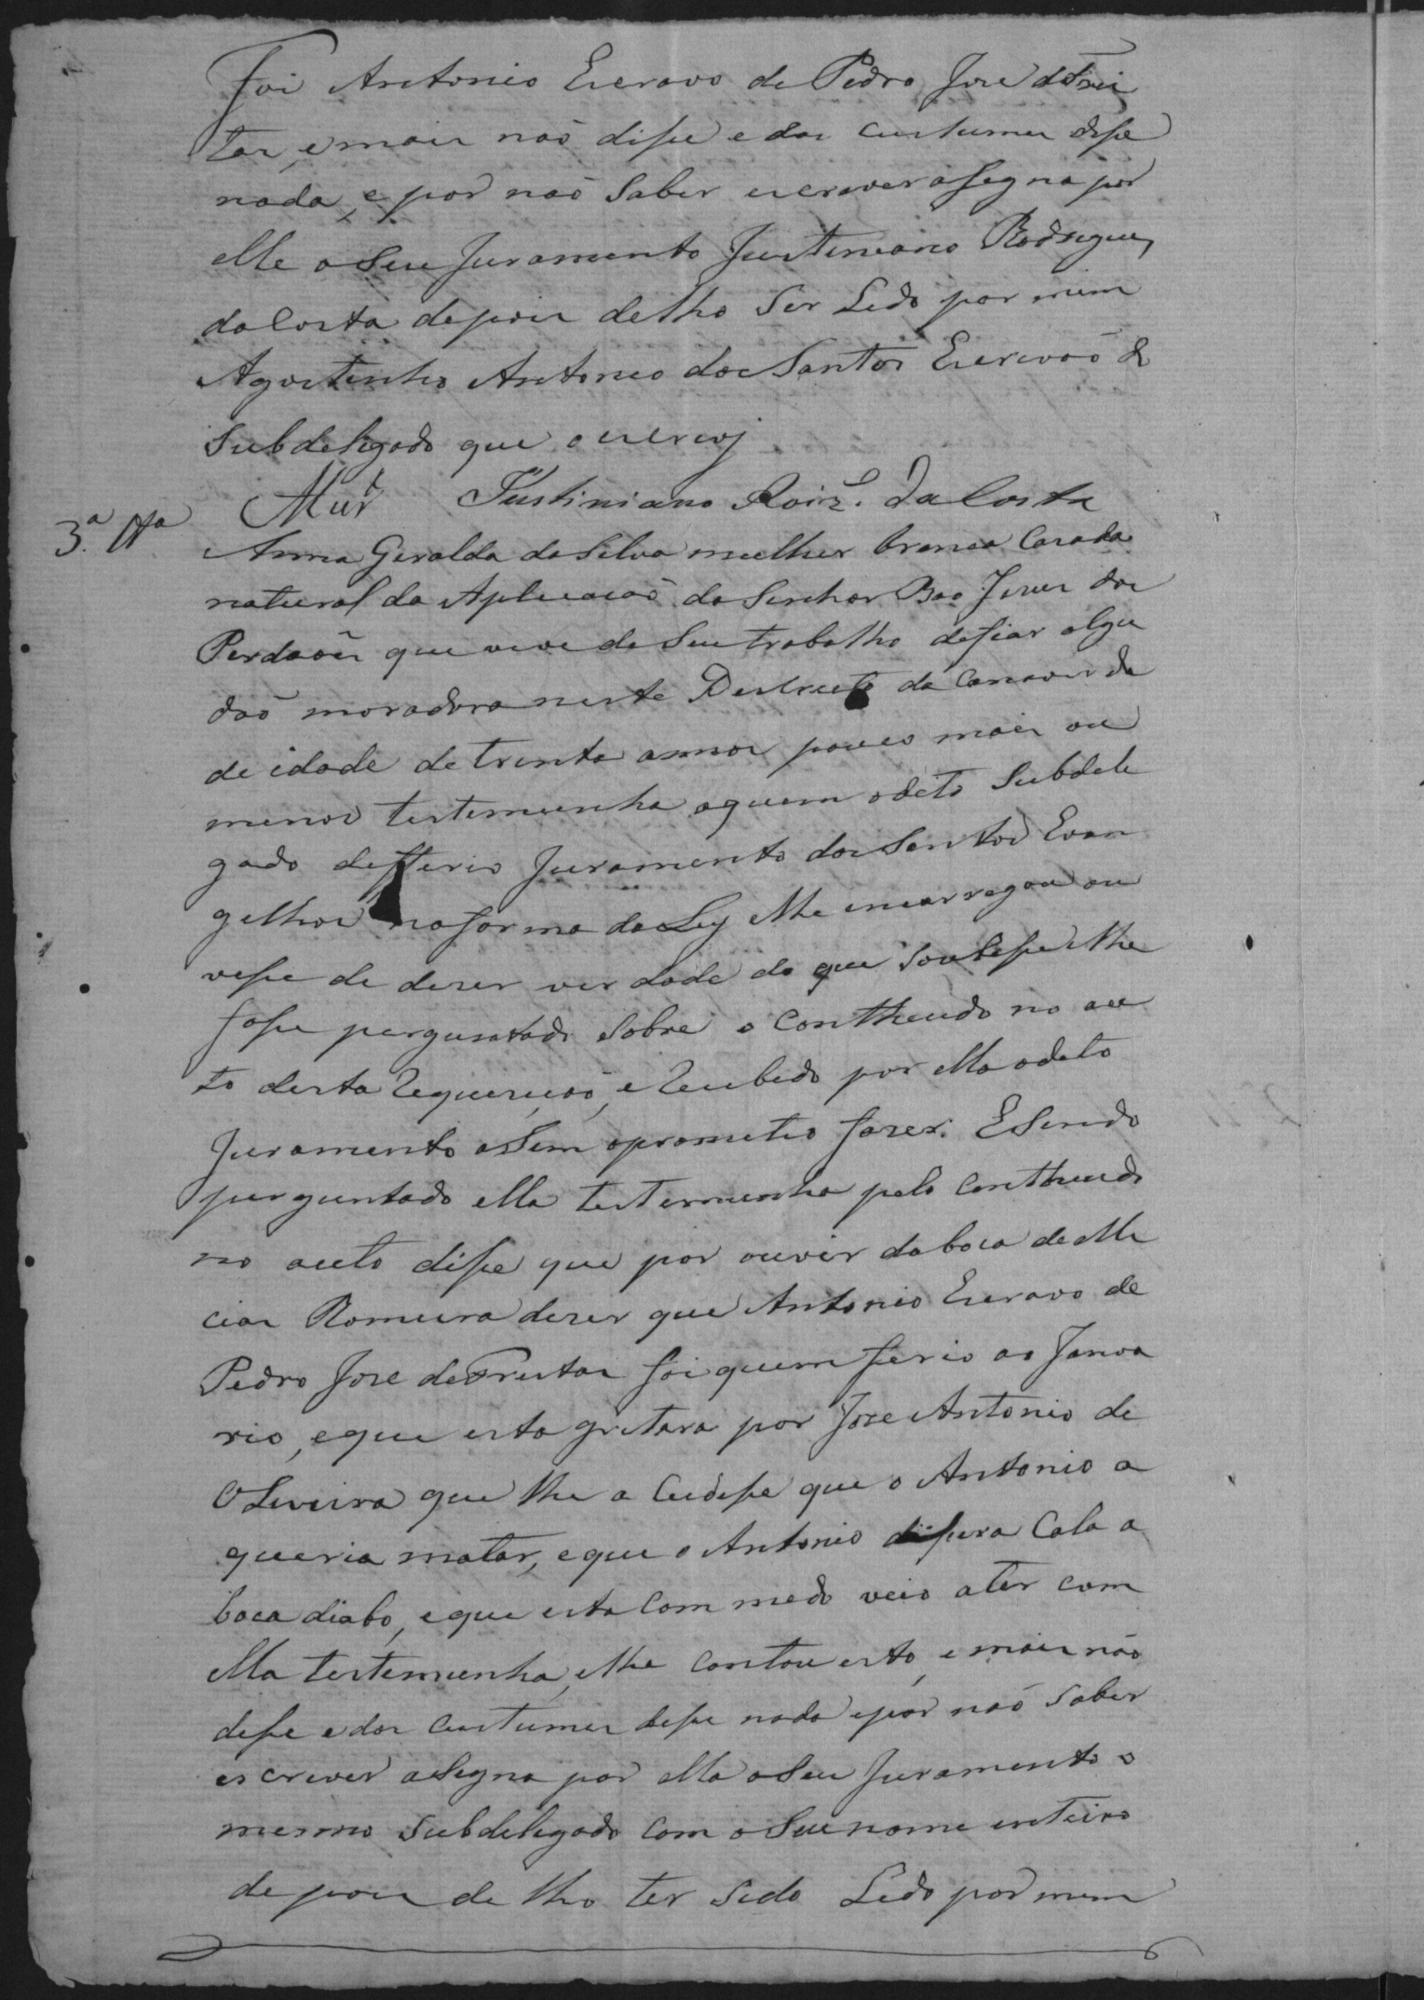 Foi Antonio Escravo de Pedro Jose de Frei
tas, e mais naõ disse e dos custumes disse
nada, e por naõ saber escrever assigna por
elle o seu juramento Justiniano Rodrigues
da Costa depois de lho ser Lido por mim
Agostinho Antonio dos Santos Escrivaõ do
Subdelegado que o escrevj
Justiniano Roiz. da Costa
3.ª Tª
Anna Geralda da Silva mulher branca Casada
natural da Aplicacaõ do Senhor Bao Jesus dos
Perdoẽs que vive do seu trabalho de fiar algu
daõ moradora neste Destricto da Canaverde
de idade de trinta annos pouco mais ou
menos testemunha aquem o dito Subdele
gado defferio Juramento dos Santos Evan
gelhos na forma da Ley e lhe encarregou ou
vesse de dizer verdade do que soubesse e lhe
fosse perguntado sobre o contheudo no au
to desta Requiriçaõ, e Recebido por ella o dito
Juramento assim o prometio fazer. E sendo
perguntado ella testemunha pelo contheudo
no auto disse que por ouvir da boca de Me
cias Romeira dezer que Antonio Escravo de
Pedro Jose de Freitas foi quem ferio ao Janoa
rio, e que esta gritara por Jose Antonio de
Oliveira que lhe a Cudisse que o Antonio a
queria matar, e que o Antonio dissera Cala a
boca diabo, e que esta com medo veio a ter com
ella testemunha, e lhe contou isto, e mais não
disse e dos custumes disse nada e por naõ saber
escrever assigna por ella o seu Juramento o
mesmo Subdelegado com o seu nome inteiro
depois de lho ter sido Lido por mim